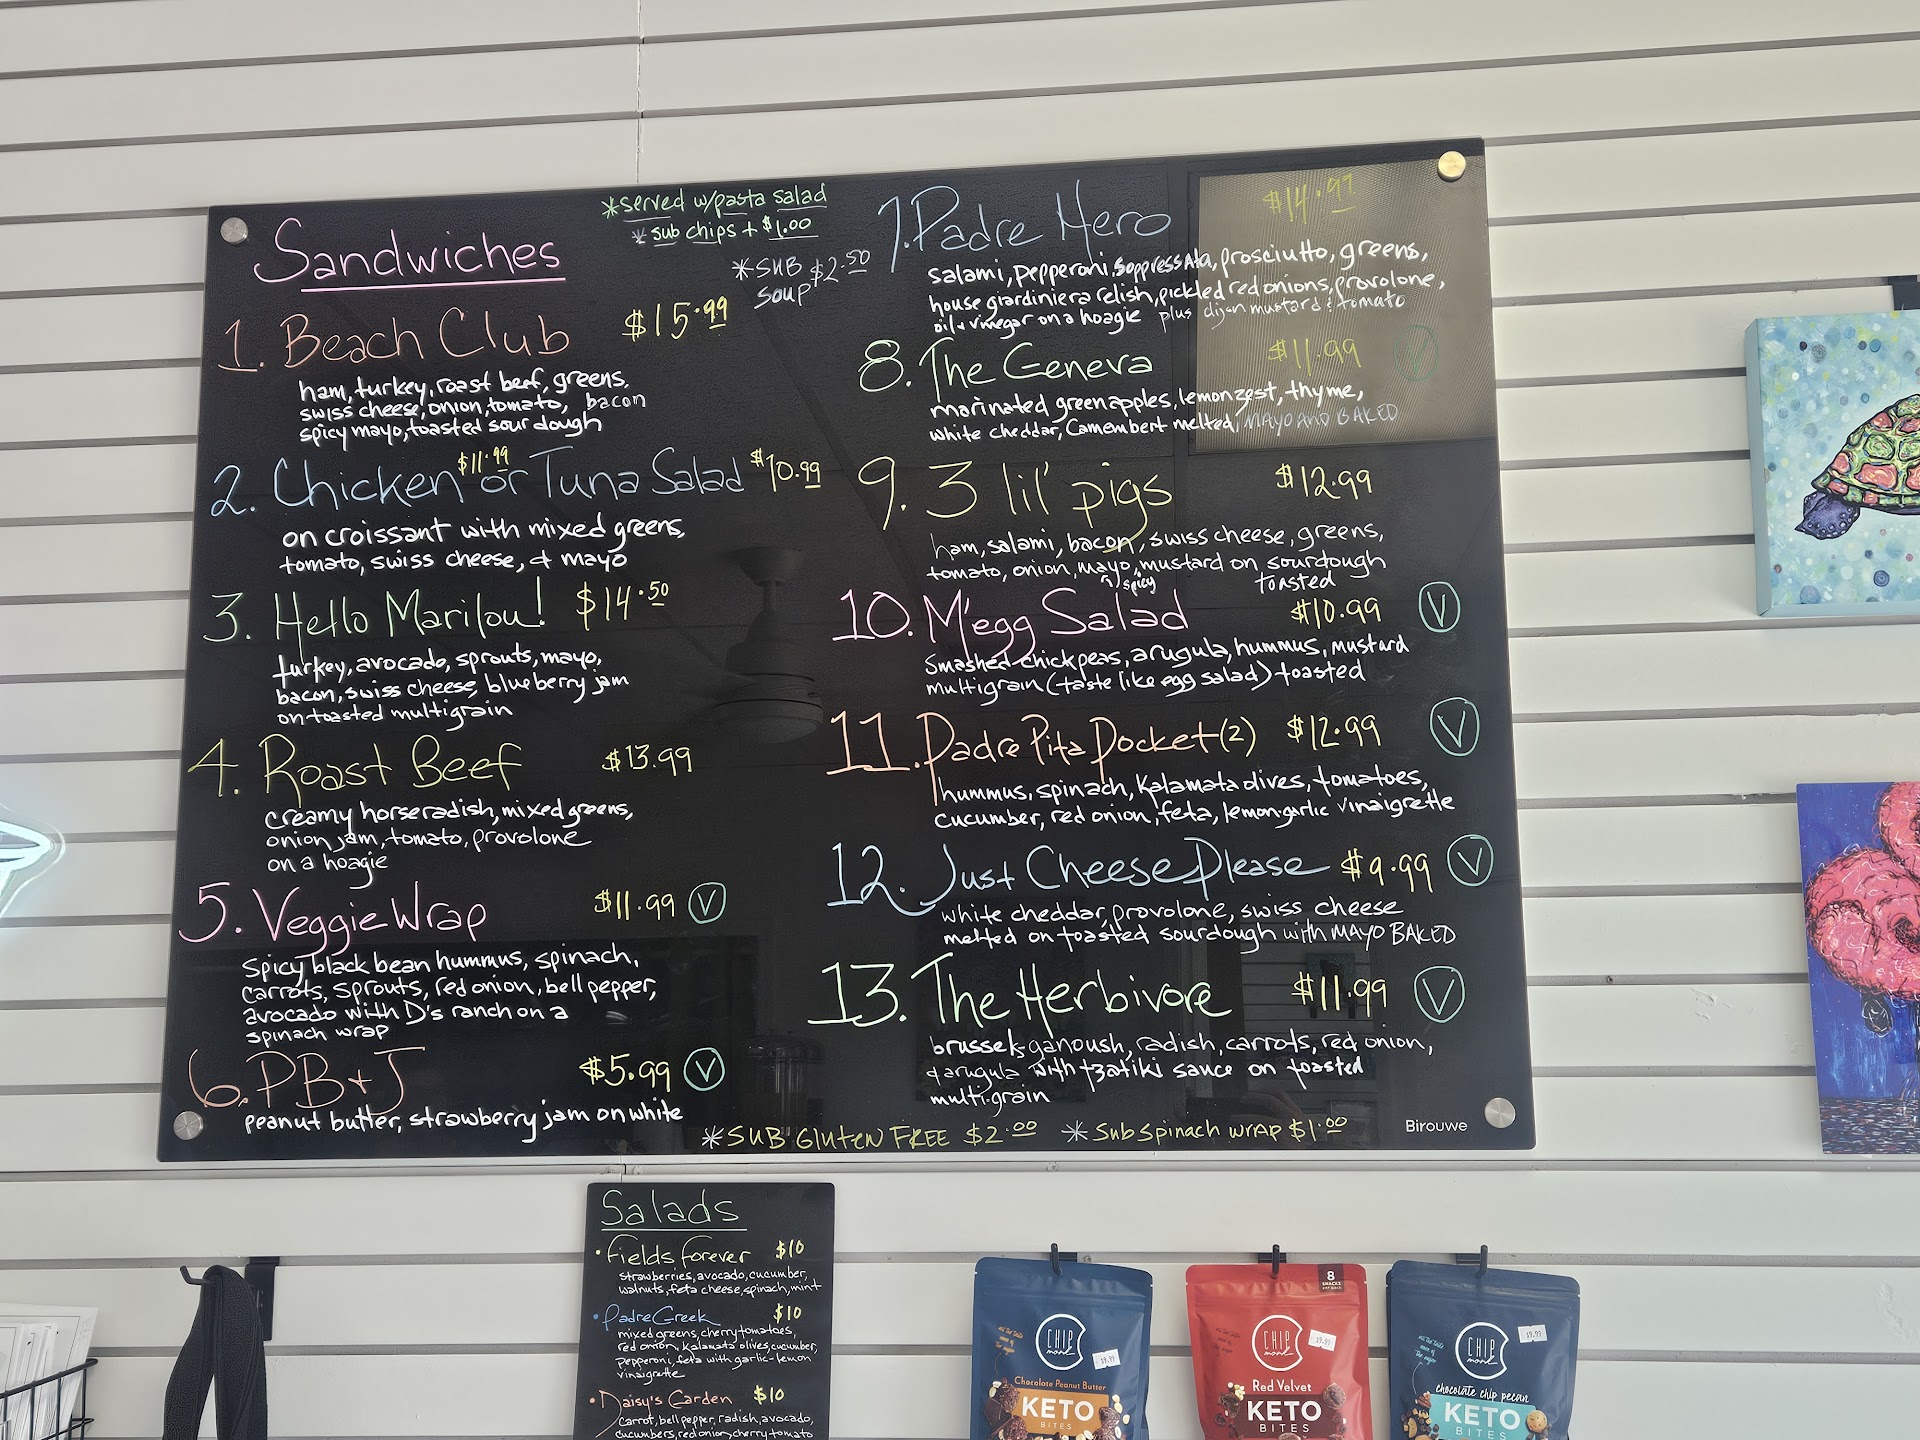 Sandwiches
*served w/pasta salad
* sub chips + $1.00
*SUB $2.50
SOUP
1. Beach Club $15.99
ham, turkey, roast beef, greens,
swiss cheese, onion, tomato, bacon
spicy mayo, toasted sour dough
2. Chicken $11.99 or Tuna Salad $10.99
on croissant with mixed greens,
tomato, swiss cheese, & mayo
3. Hello Marilou! $14.50
turkey, avocado, sprouts, mayo,
bacon, swiss cheese, blueberry jam
on toasted multigrain
4. Roast Beef $13.99
creamy horseradish, mixed greens,
onion jam, tomato, provolone
on a hoagie
5. Veggie Wrap $11.99 V
Spicy black bean hummus, spinach,
carrots, sprouts, red onion, bell pepper,
avocado with D's ranch on a
spinach wrap
6. PB+J $5.99 V
peanut butter, strawberry jam on white
7. Padre Hero $14.99
salami, pepperoni, soppressata, prosciutto, greens,
house giardiniera relish, pickled red onions, provolone,
oil + vinegar on a hoagie plus dijon mustard & tomato
8. The Geneva $11.99 V
marinated green apples, lemon zest, thyme,
white cheddar, Camembert melted, MAYO AND BAKED
9. 3 lil' pigs $12.99
ham, salami, bacon, swiss cheese, greens,
tomato, onion, mayo, mustard on sourdough
spicy toasted
10. M'egg Salad $10.99 V
Smashed chickpeas, arugula, hummus, mustard
multigrain (taste like egg salad) toasted
11. Padre Pita Pocket (2) $12.99 V
hummus, spinach, Kalamata olives, tomatoes,
cucumber, red onion, feta, lemon-garlic vinaigrette
12. Just Cheese Please $9.99 V
white cheddar, provolone, swiss cheese
melted on toasted sourdough with MAYO BAKED
13. The Herbivore $11.99 V
brussels ganoush, radish, carrots, red onion,
& arugula with tzatiki sauce on toasted
multi-grain
*SUB GLUTEN FREE $2.00 *Sub Spinach WRAP $1.00
Birouwe
Salads
• Fields Forever $10
strawberries, avocado, cucumber,
walnuts, feta cheese, spinach, mint
• Padre Greek $10
mixed greens, cherry tomatoes,
red onion, Kalamata olives, cucumber,
pepperoni, feta with garlic-lemon
vinaigrette
• Daisy's Garden $10
Carrot, bell pepper, radish, avocado,
cucumbers, red onion, cherry tomato
CHIP
monk
19.99
Chocolate Peanut Butter
KETO
BITES
8
SNACKS
PER PACK
CHIP
monk
19.99
Red Velvet
KETO
BITES
CHIP
monk
19.99
chocolate chip pecan
KETO
BITES